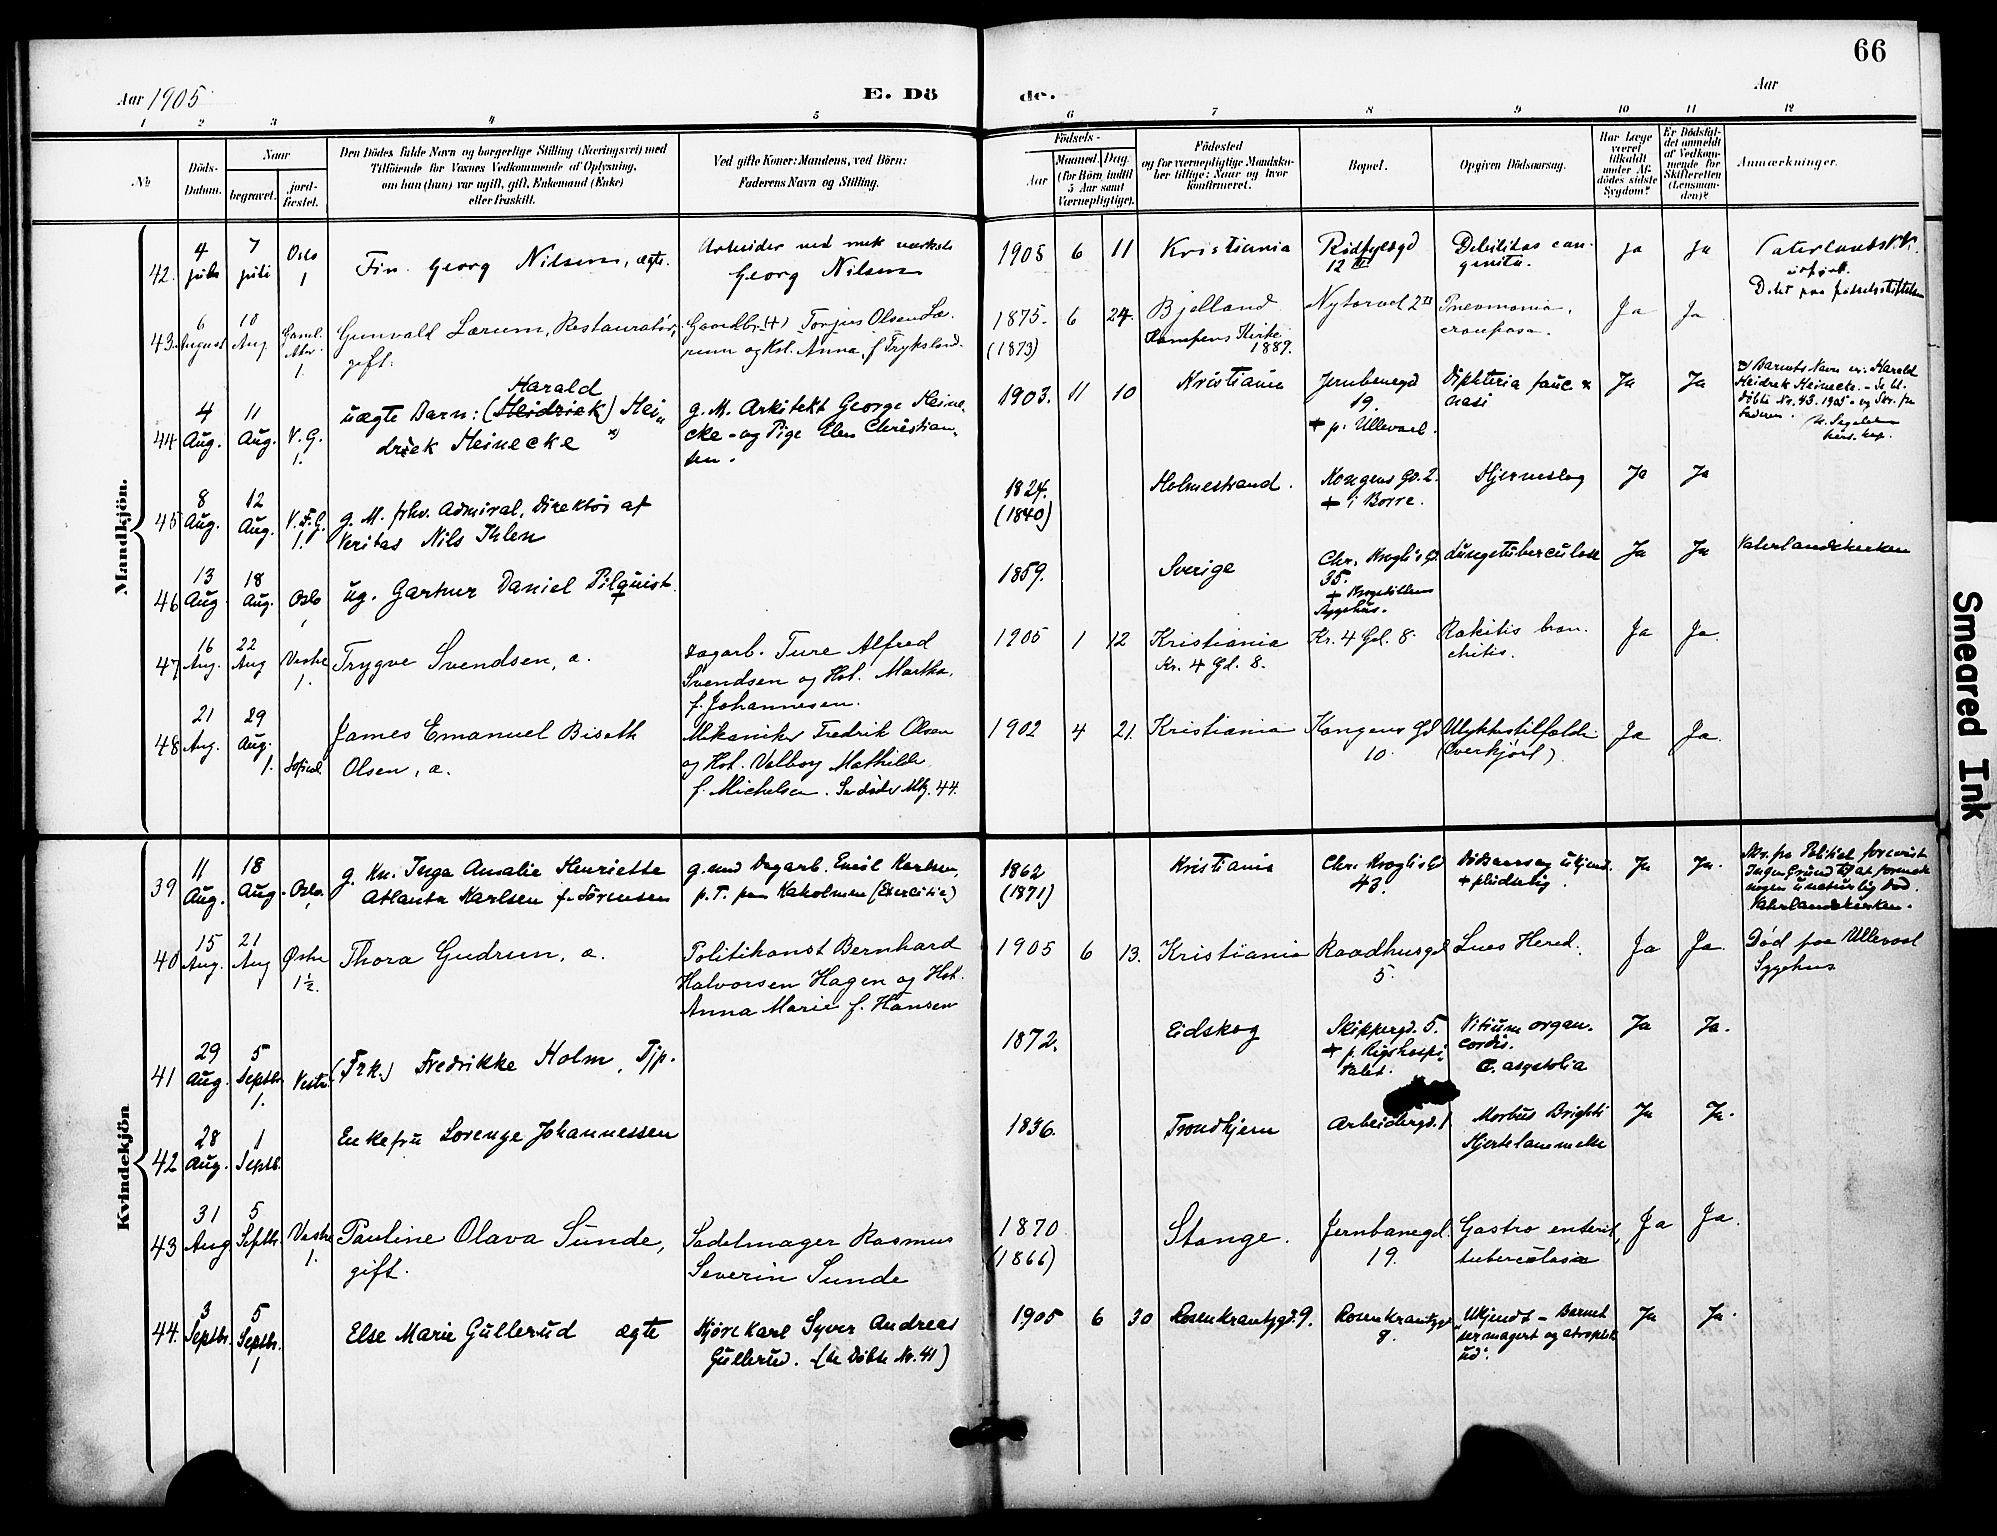 66
Aar 1905
E. Dö
de.
Aar
1 2 3 4 5 6 7 8 9 10 11 12
No
Döds-
Datum.
Naar
begravet.
jord-
fæstet.
Den Dödes fulde Navn og borgerlige Stilling (Næringsvei) med
Tilföiende for Voxnes Vedkommende af Oplysning,
om han (hun) var ugift, gift, Enkemand (Enke)
eller fraskilt.
Ved gifte Koner: Mandens, ved Börn:
Faderens Navn og Stilling.
Födsels-
Aar
Maaned.
Dag.
(for Börn indtil
5 Aar samt
Værnepligtige).
Födested
og for værnepligtige Mandska-
ber tillige: Naar og hvor
konfirmeret.
Bopæl.
Opgiven Dödsaarsag.
Har Læge
været
tilkaldt
under Af-
dödes sidste
Sygdom?
Er Dödsfal-
det anmeldt
af Vedkom-
mende for
Skifteretten
(Lensman-
den)?
Anmærkninger.
Mandkjön.
42.
4
juli
7
juli
Oslo
1
Fin Georg Nilsen, ægte.
Arbeider ved mek værksted
Georg Nilsen
1905 6 11
Kristiania
Rödfyldgd
12 III
Debilitas con-
genita.
ja
ja
Vaterlands K.
Död paa födselsstiftelsen
43.
6
August
10
Aug
Gaml.
Akr.
1.
Gunvald Lærum, Restauratør,
gift.
Gaardbr. (+) Torjus Olsen Læ-
rum og Kst. Anna, f. Tryksland.
1875.
(1873)
6 24.
Bjelland
Kampens Kirke
1889.
Nytorvet 2 II
Pneumonia
crouposa.
Ja
Ja
44
4
Aug.
11
Aug.
V. G.
1.
Harald
uægte Barn: (Heidrick) Hei-
drick Heinecke x)
g. M. Arkitekt George Heine-
cke - og Pige Elen Christian-
sen.
1903. 11 10
Kristiania
Jernbanegd
19.
+ p. Ullevaal.
Diphteria fauc &
nasi
Ja
Ja
x) Barnets Navn er: Harald
Heidrek Heinecke. - Se bl.
døbte Nr. 43. 1905 - og Skr. fra
Faderen.
45
8
Aug.
12
Aug.
V. F. G.
1.
g. M. fhv. Admiral, Direktör af
Veritas Nils Ihlen
1824.
(1840)
Holmestrand.
Kongens Gd. 2.
+ i Borre.
Hjerneslag
Ja
Ja
46
13
Aug
18
Aug.
Oslo
1
ug. Gartner Daniel Pilquist.
1859.
Sverige
Chr. Kroghs Gd.
35.
+ Krogstøttens
Sygehus.
Lungetuberculose
Ja
Ja
Vaterlandskirken
47
16
Aug.
22
Aug
Vestre
1.
Trygve Svendsen, æ.
Dagarb. Ture Alfred
Svendsen og Hst. Martha,
f. Johannesen.
1905 1 12
Kristiania
Kr. 4 Gd. 8.
Kr. 4 Gd. 8.
Rakitis bron-
chitis.
Ja
Ja.
48
21
Aug.
29
Aug.
1.
Sofienl.
James Emanuel Biseth
Olsen, æ.
Mekaniker Fredrik Olsen
og Hst. Valborg Mathilde
f. Michelsen. Se døde Mk. 44.
1902 4 21.
Kristiania
Kongens Gd
10.
Ulykkestilfælde
(Overkjørt).
Ja
Ja.
Kvindekjön
39
11
Aug.
18
Aug.
Oslo
1
g. Kn. Inga Amalie Henriette
Atlanta Karlsen f. Sörensen
g. med Dagarb. Emil Karlsen,
p. T. paa Kaholmen (Exercitie)
1862
(1871)
Kristiania
Chr. Kroghs Gd
43.
Dödsaarsag ukjend.
+ pludselig.
Ja
Ja.
Skr. fra Politiet forevist
Ingen Grund til at formode
nogen unaturlig Död.
Vaterlandskirken.
40
15
Aug.
21
Aug
Østre
1½.
Thora Gudrun, æ.
Politikonst Bernhard
Halvorsen Hagen og Hst.
Anna Marie f. Hansen
1905 6 13.
Kristiania
Raadhusgd
5.
Lues Hered.
Ja
Ja.
Død paa Ullevaal
Sygehus
41
29
Aug.
5
Septbr.
1.
Vestre
(Frk.) Fredrikke Holm, Tjp.
1872.
Eidskog
Skippergd. 5.
+ p. Rigshospi-
talet.
Vitium organ.
cordis.
C. asystolia
Ja
Ja.
42
28
Aug.
1
Septb.
Enkefru Lorenze Johannessen
1836.
Trondhjem
Arbeidergd. 1
Morbus Brighti
Hjertelammelse
Ja
Ja.
43
31
Aug
5
Septbr.
Vestre
1.
Pauline Olava Sunde,
gift.
Sadelmager Rasmus
Severin Sunde
1870
(1866)
Stange.
Jernbanegd.
19.
Gastro enterit,
tuberculosa
Ja
Ja.
44.
3
Septbr.
5
Septbr.
1
Else Marie Gullerud ægte
Kjørekarl Syver Andreas
Gullerud. (se Döbte Nr. 41)
1905 6 30
Rosenkrantzgd. 9.
Rosenkrantzgd
8.
Ukjendt - "Barnet
ser magert og atrophisk
ud".
Ja
Ja.
Smeared Ink